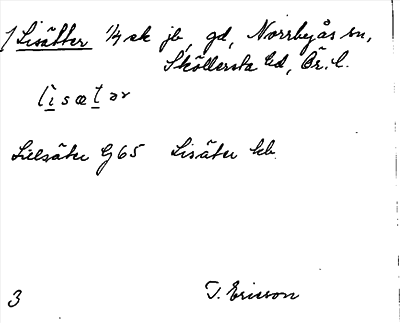 1 Lisätter 1/4 sk jb, gd, Norrbyås sn,
Sköllersta hd, Ör. l.
lìsætər
Lillsäter G 65 Lisäter kb
3 T. Ericson